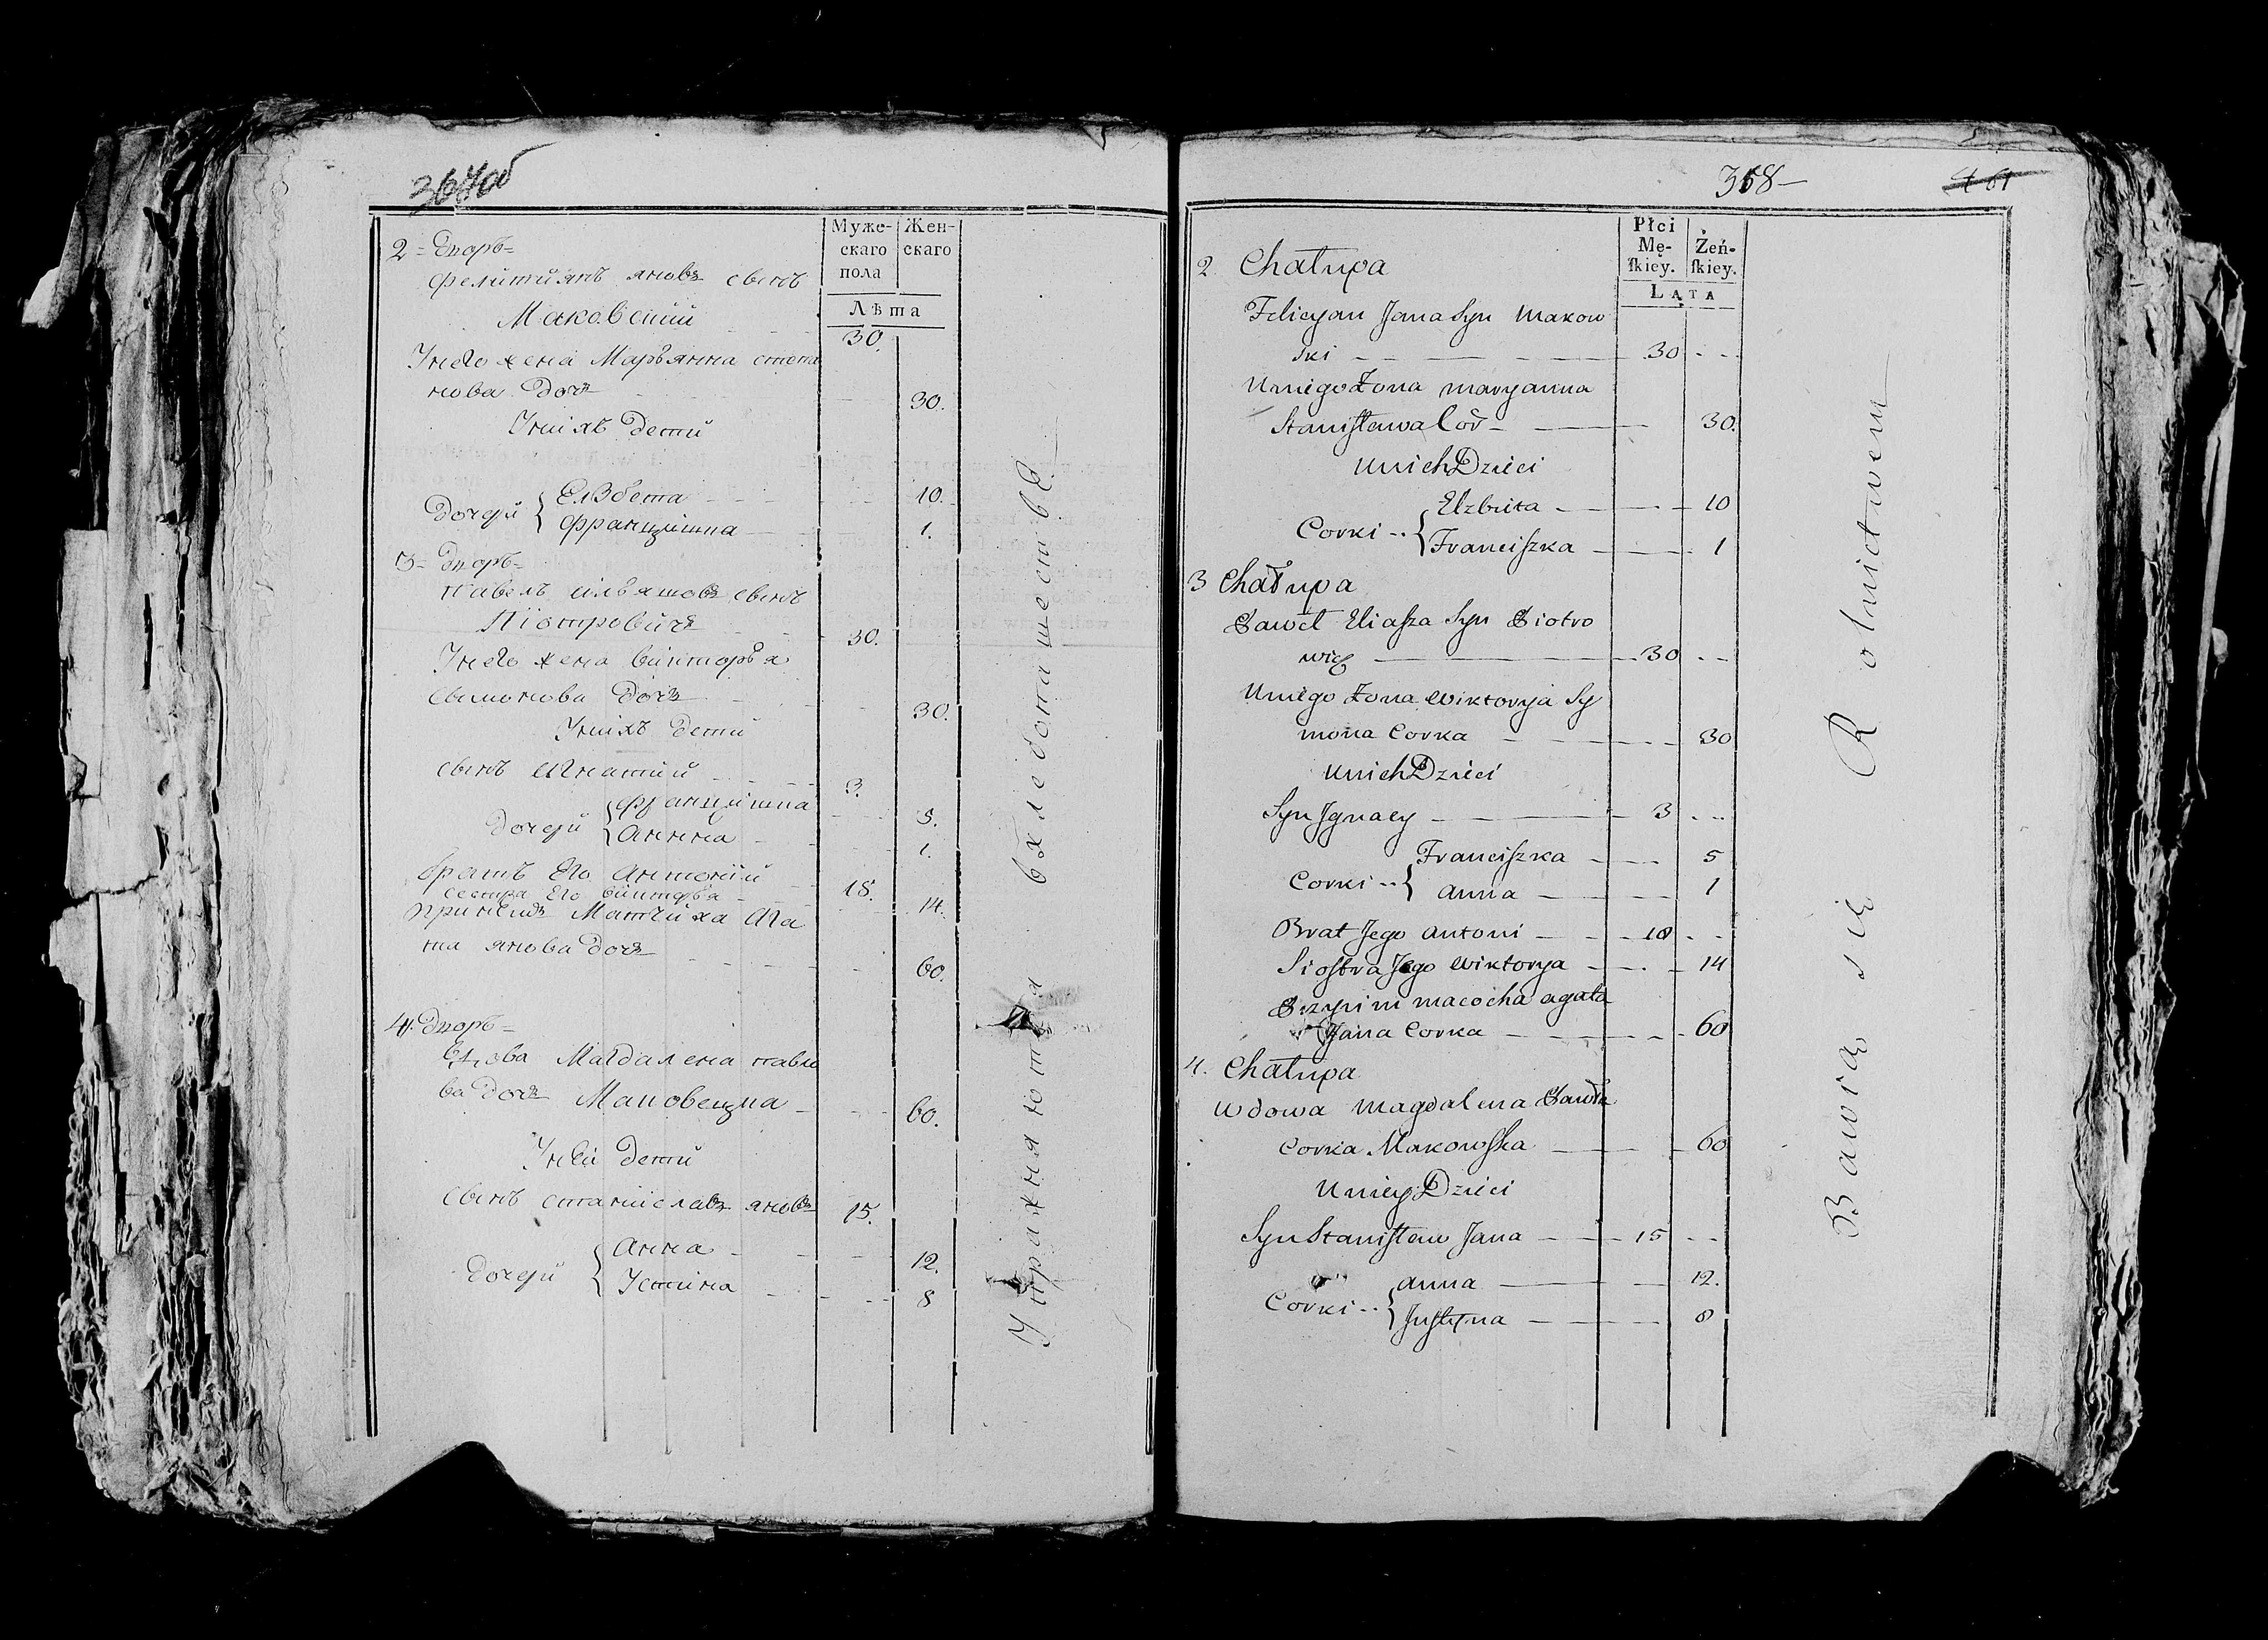 367об
Муже-
скаго
пола
Жен-
скаго
Лѣта
2 = Дворъ =
Фелитиянъ яновъ сынъ
Маковский 30.
У него жена Маръянна стани
нова дочь 30.
У нихъ дети
дочери { Елзбета 10.
Францишка 1.
3 = Дворъ =
Павелъ илъяшовъ сынъ
Піотровичъ 30.
У него жена викторъя
сымонова дочь 30.
У нихъ дети
сынъ игнатий 3.
дочери { францишка 5.
Анна 1.
братъ Его Антоний 18.
сестра Его викторъя 14.
при нихъ Мачиха Ага
та янова дочь 60.
4. Дворъ =
вдова Магдалена павло
ва дочь Маковецка 60.
У неи дети
сынъ станиславъ яновъ 15.
дочери { Анна 12.
Устина 8
Упражняются в хлебопашестве
358—
461
Płci
Mę-
ſkiey.
Żeń-
ſkiey.
Lata
2 Chałupa
Felicyan Jana Syn Makow
ski — 30 - - -
U niego Żona Maryanna
Stanisława Cór — 30.
U nich Dzieci
Corki { Elzbieta — 10
Franciszka — 1
3 Chałupa
Paweł Eliasza Syn Piotro
wicz — 30 - -
U niego Żona Wiktorya Sy
mona Corka — 30
U nich Dzieci
Syn Jgnacy — 3 - - -
Corki { Franciszka — 5
Anna — 1
Brat Jego Antoni — 18 - -
Siostra Jego Wiktorya — 14
Przynim macocha agata
Jana Corka — 60
4. Chałupa
Wdowa Magdalena Pawła
Corka Makowska — 60
U niey Dzieci
Syn Stanisław Jana — 15 - -
Corki { Anna — 12.
Justyna — 8
Bawią się Rolnictwem